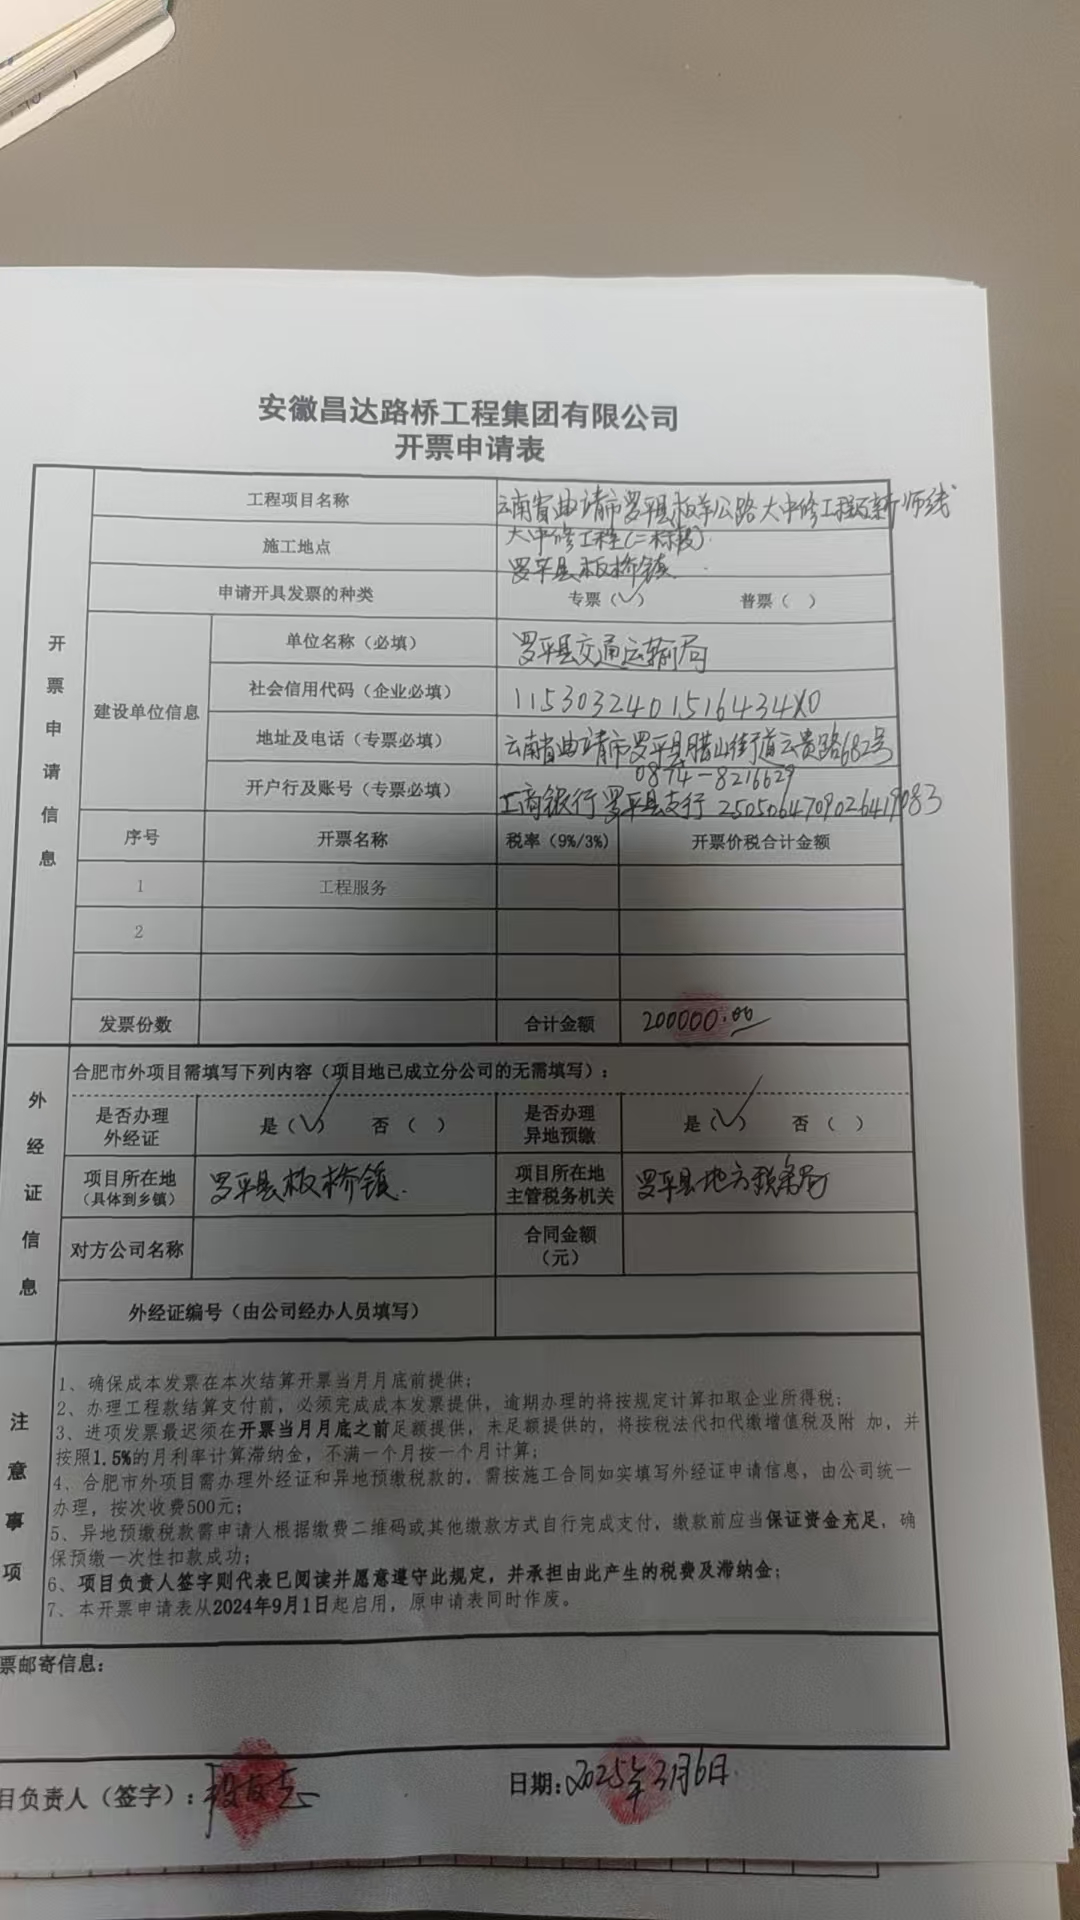 安徽昌达路桥工程集团有限公司
开票申请表
开票申请信息
工程项目名称 云南省曲靖市罗平县板羊公路大中修工程及新师线
大中修工程(二标段).
施工地点 罗平县板桥镇.
申请开具发票的种类 专票(✓) 普票( )
建设单位信息
单位名称（必填） 罗平县交通运输局
社会信用代码（企业必填）
地址及电话（专票必填） 云南省曲靖市罗平县腊山街道云贵路682号
0874-8216629
开户行及账号（专票必填） 工商银行罗平县支行
序号 开票名称 税率（9%/3%） 开票价税合计金额
1 工程服务
2
发票份数 合计金额 200000.00
外经证信息
合肥市外项目需填写下列内容（项目地已成立分公司的无需填写）：
是否办理 是否办理
外经证 是(✓) 否( ) 异地预缴 是(✓) 否( )
项目所在地 罗平县板桥镇. 项目所在地 罗平县地方税务局
（具体到乡镇） 主管税务机关
对方公司名称 合同金额
（元）
外经证编号（由公司经办人员填写）
注意事项
1、确保成本发票在本次结算开票当月月底前提供；
2、办理工程款结算支付前，必须完成成本发票提供，逾期办理的将按规定计算扣取企业所得税；
3、进项发票最迟须在开票当月月底之前足额提供，未足额提供的，将按税法代扣代缴增值税及附 加，并
按照1.5%的月利率计算滞纳金，不满一个月按一个月计算；
4、合肥市外项目需办理外经证和异地预缴税款的，需按施工合同如实填写外经证申请信息，由公司统一
办理，按次收费500元；
5、异地预缴税款需申请人根据缴费二维码或其他缴款方式自行完成支付，缴款前应当保证资金充足，确
保预缴一次性扣款成功；
6、项目负责人签字则代表已阅读并愿意遵守此规定，并承担由此产生的税费及滞纳金；
7、本开票申请表从2024年9月1日起启用，原申请表同时作废。
票邮寄信息：
目负责人（签字）： 日期：2025年3月6日